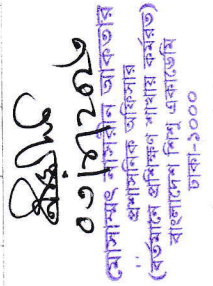 মোসাম্মৎ নাসরিন আকতার
প্রশাসনিক অফিসার
(বর্তমানে প্রশিক্ষণ শাখায় কর্মরত)
বাংলাদেশ শিশু একাডেমি
ঢাকা-১০০০